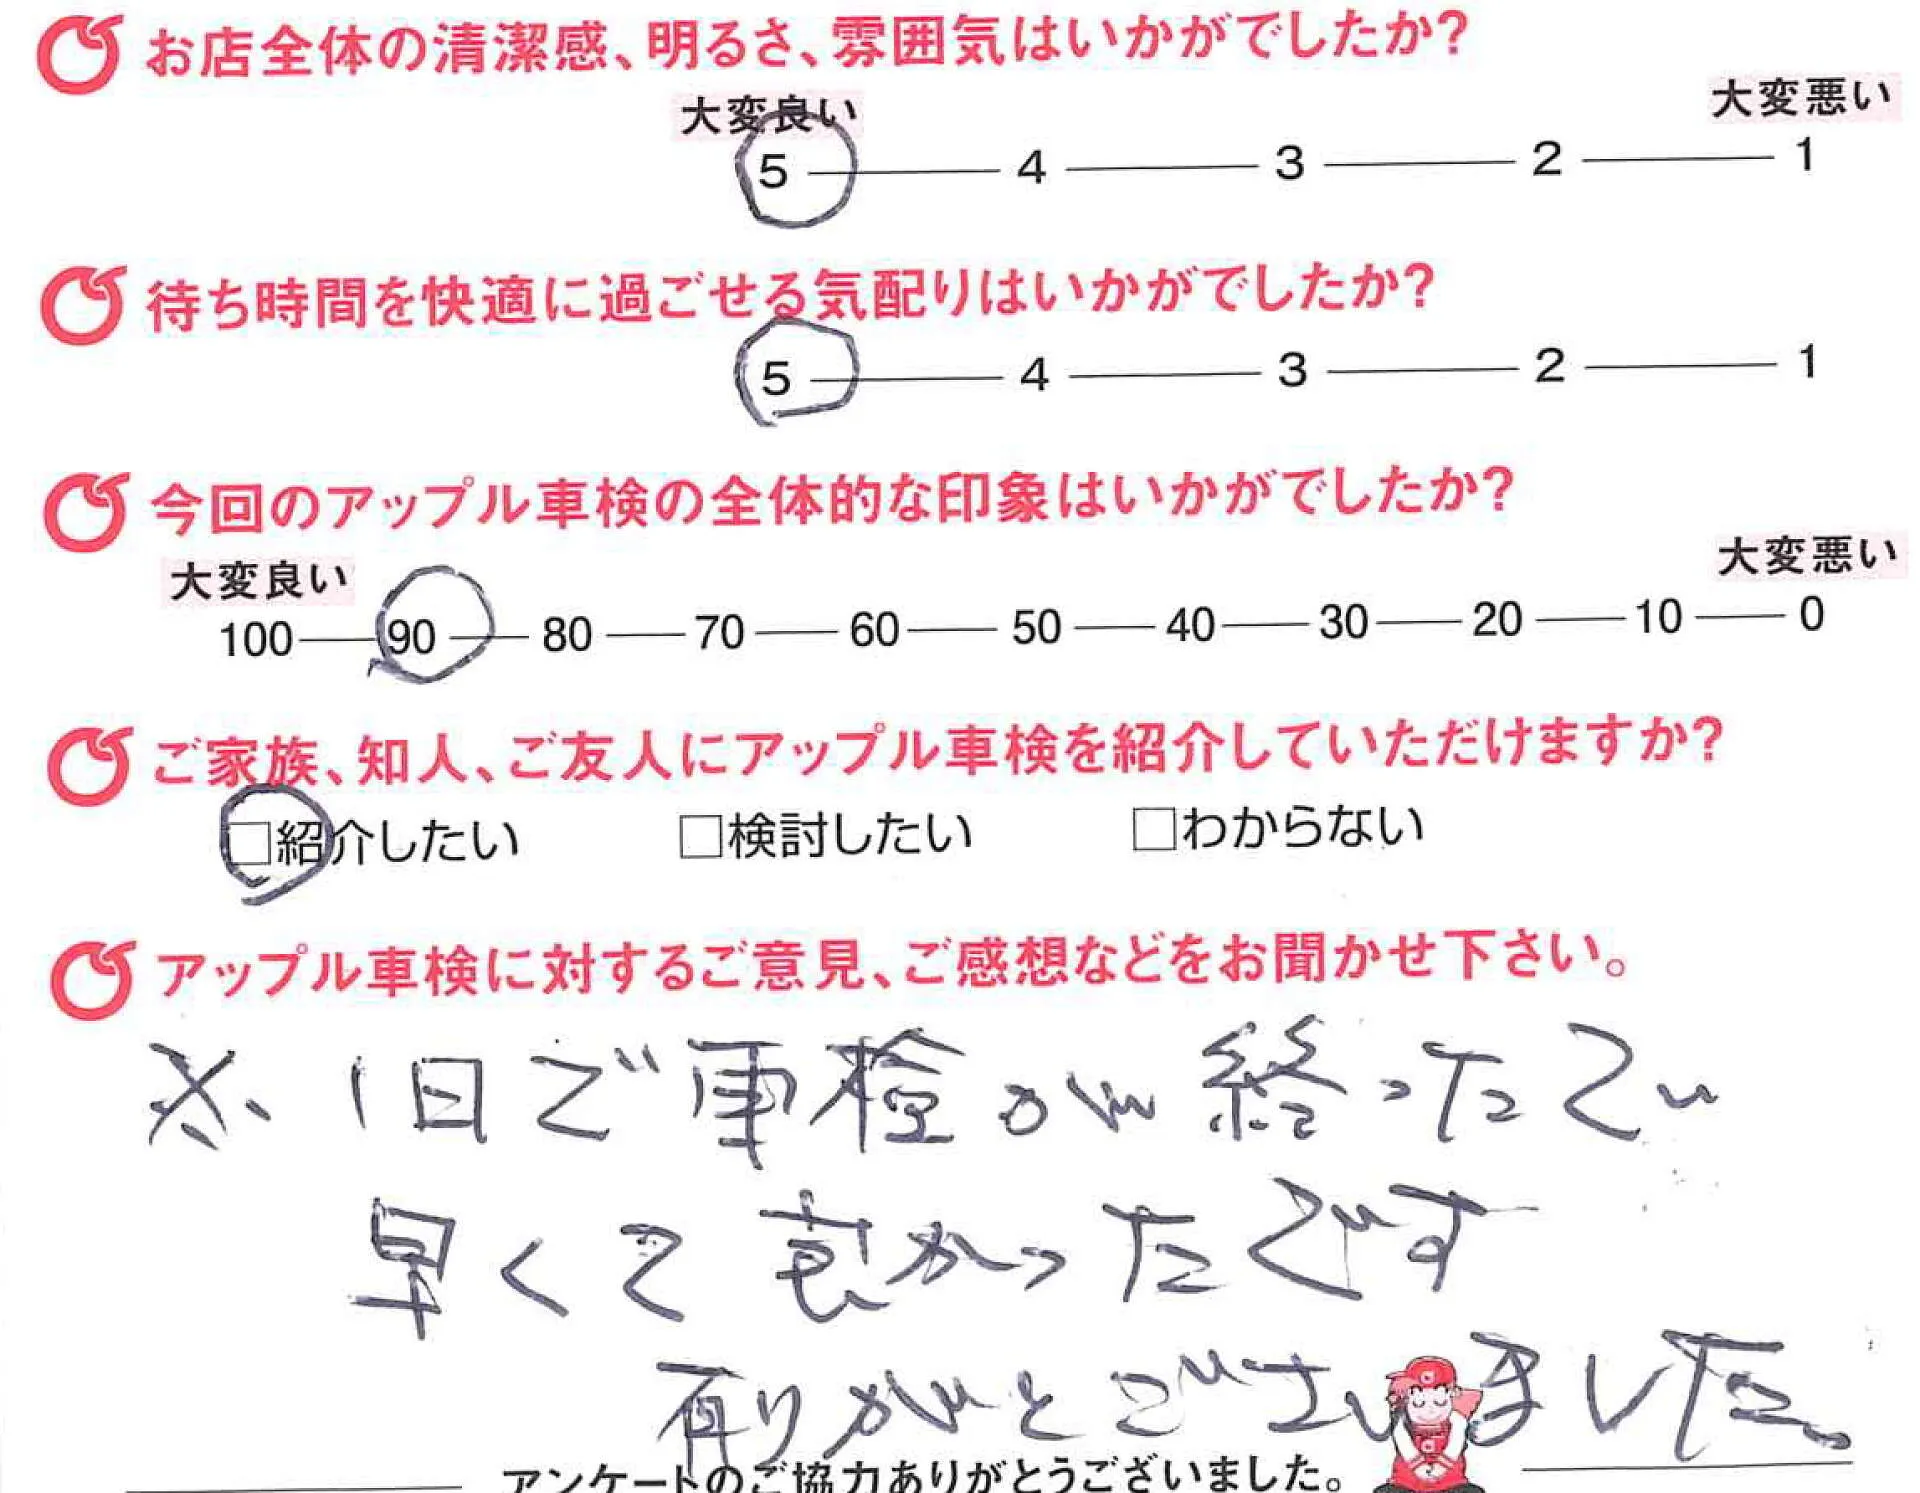 お店全体の清潔感、明るさ、雰囲気はいかがでしたか?
大変良い 大変悪い
5 4 3 2 1
待ち時間を快適に過ごせる気配りはいかがでしたか?
5 4 3 2 1
今回のアップル車検の全体的な印象はいかがでしたか?
大変良い 大変悪い
100 90 80 70 60 50 40 30 20 10 0
ご家族、知人、ご友人にアップル車検を紹介していただけますか?
□紹介したい □検討したい □わからない
アップル車検に対するご意見、ご感想などをお聞かせ下さい。
※、1日で車検が終ったで
早くて良かったです
有りがとございました。
アンケートのご協力ありがとうございました。